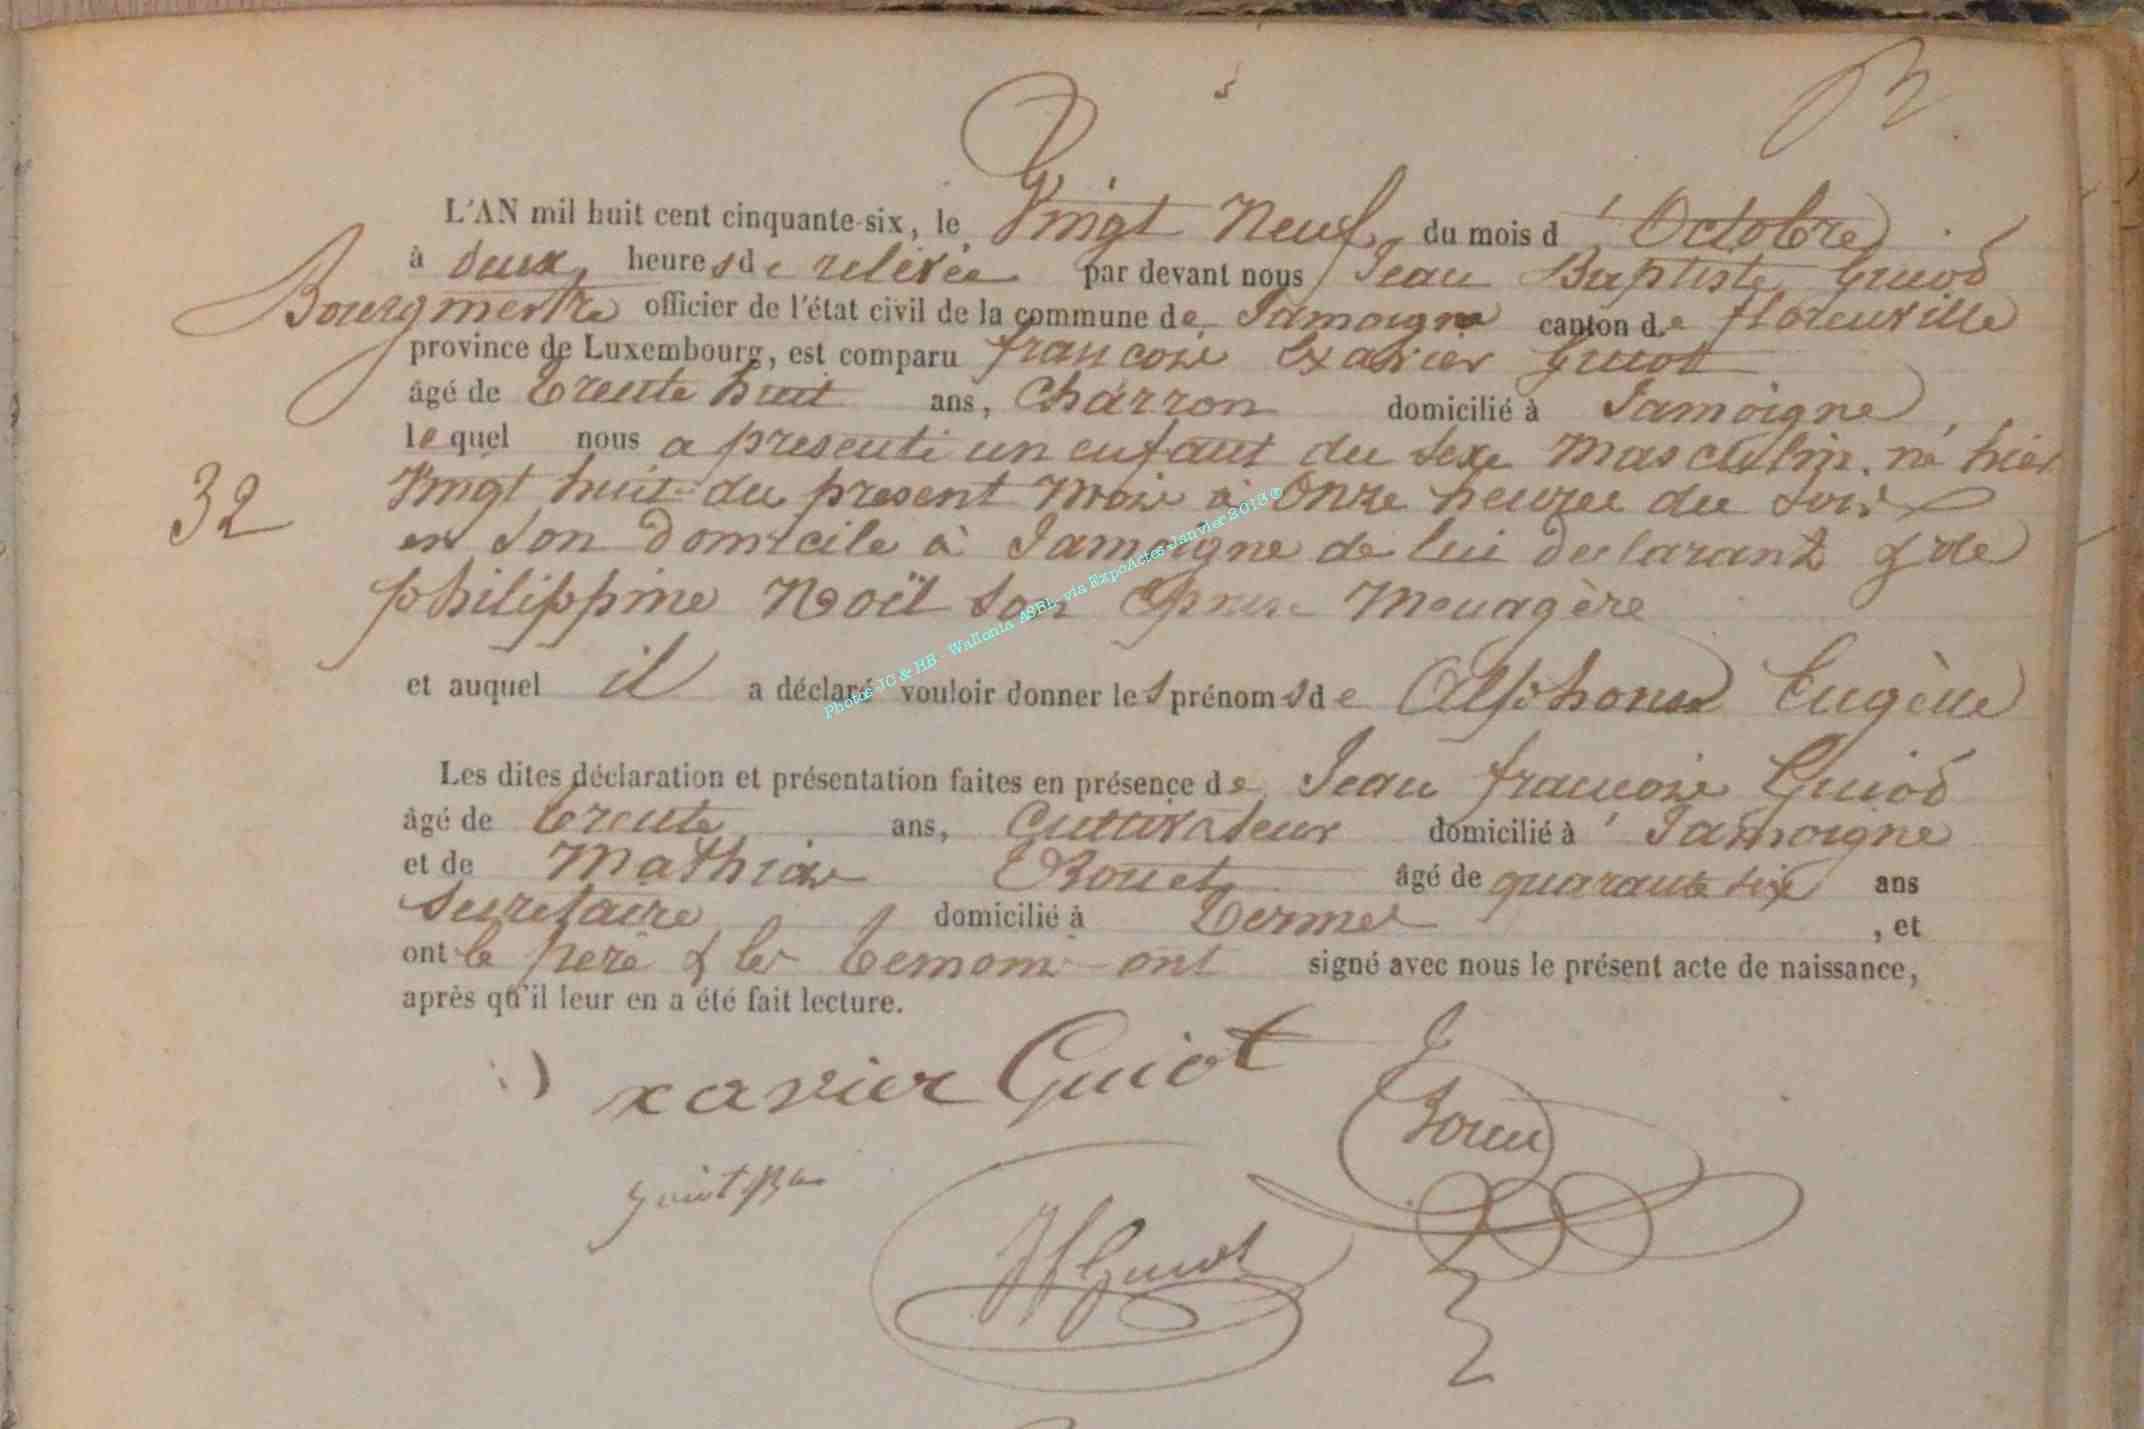 L'AN mil huit cent cinquante-six, le Vingt Neuf du mois d'Octobre
à deux heures de relevée par devant nous Jean Baptiste Guiot
Bourgmestre officier de l'état civil de la commune de Jamoigne canton de florenville
province de Luxembourg, est comparu francois Exavier Guiott
âgé de trente huit ans, Charron domicilié à Jamoigne
lequel nous a presenté un enfant du sexe Masculin, né hier
Vingt huit du present mois à Onze heures du soir
en son domicile à Jamoigne de lui declarant & de
32
philippine Noël son Epouse Menagère
et auquel il a déclaré vouloir donner les prénoms de Alphonse Eugène
Les dites déclaration et présentation faites en présence de Jean francois Guiot
âgé de trente ans, Cultivateur domicilié à Jamoigne
et de Mathias Rouet âgé de quarante six ans
Secretaire domicilié à Termes , et
ont le père & les temoins ont signé avec nous le présent acte de naissance,
après qu'il leur en a été fait lecture.
xavier Guiot
Rouet
Guiot JBte
JfGuiot
Photos JC & HB - Wallonia ASBL via ExpoActes Janvier 2013 ©